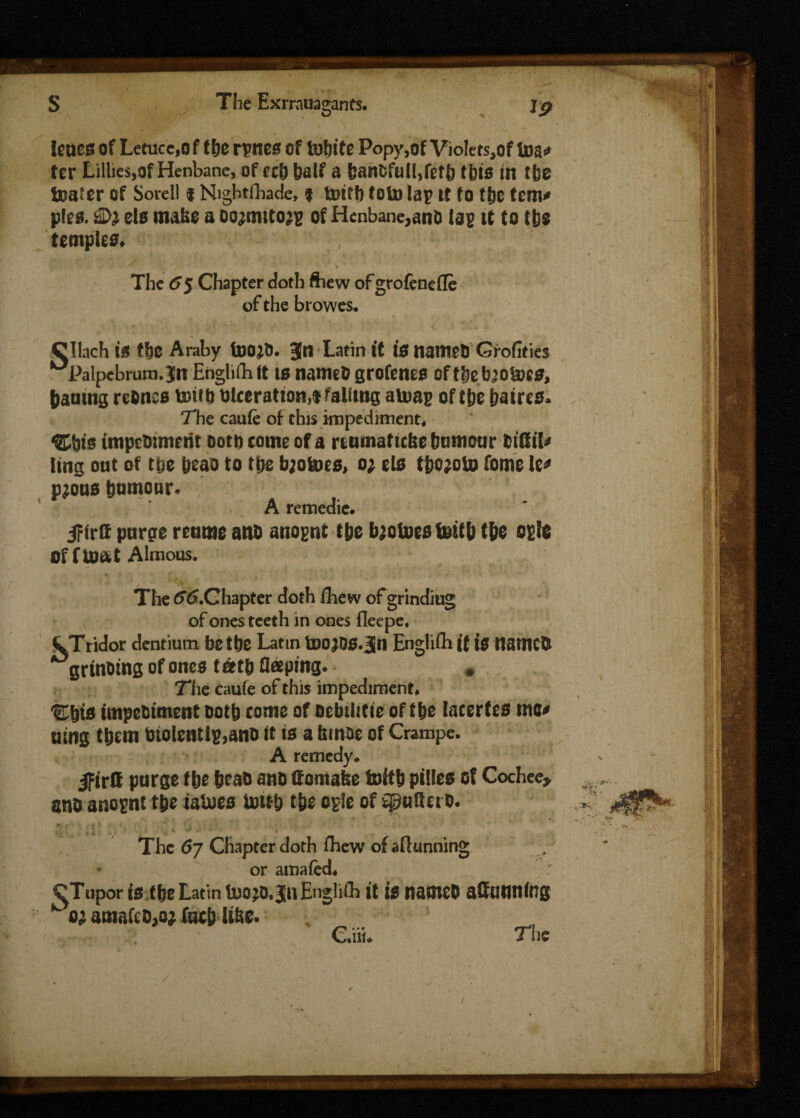 S The Extrauagants. 19
leues of Letuce,of the rynes of white Popy,of Violets,of wa-
ter Lillies,of Henbane, of ech half a handfull,seth this in the
water of Sorell & Nightshade, & with tow lay it to the tem-
ples. Or els make a dormitory of Henbane,and lay it to the
temples.
The 65 Chapter doth shew of grosenesse
of the browes.
SIlach is the Araby word. In Latin it is named Grosities
Palpebrum. In English it is named grosenes of the browes,
hauing rednes with vlceration,& falling away of the haires.
The cause of this impediment.
This impediment doth come of a reumaticke humour distil-
ling out of the head to the browes, or els thorow some le-
prous humour.
A remedie.
First purge reume and anoynt the browes with the oyle
of swéet Almous.
The 66.Chapter doth shew of grinding
of ones teeth in ones sleepe.
STridor dentium be the Latin words.In English it is named
grinding of ones téeth sléeping.
The cause of this impediment.
This impediment doth come of debilitie of the lacertes me-
uing them violently,and it is a kinde of Crampe.
A remedy.
First purge the head and stomake with pilles of Cochee,
and anoynt the iawes with the oyle of Mustard.
The 67 Chapter doth shew of astunning
or amased.
STupor is the Latin word.In English it is named astunning
or amased,or such like.
C.iii. The